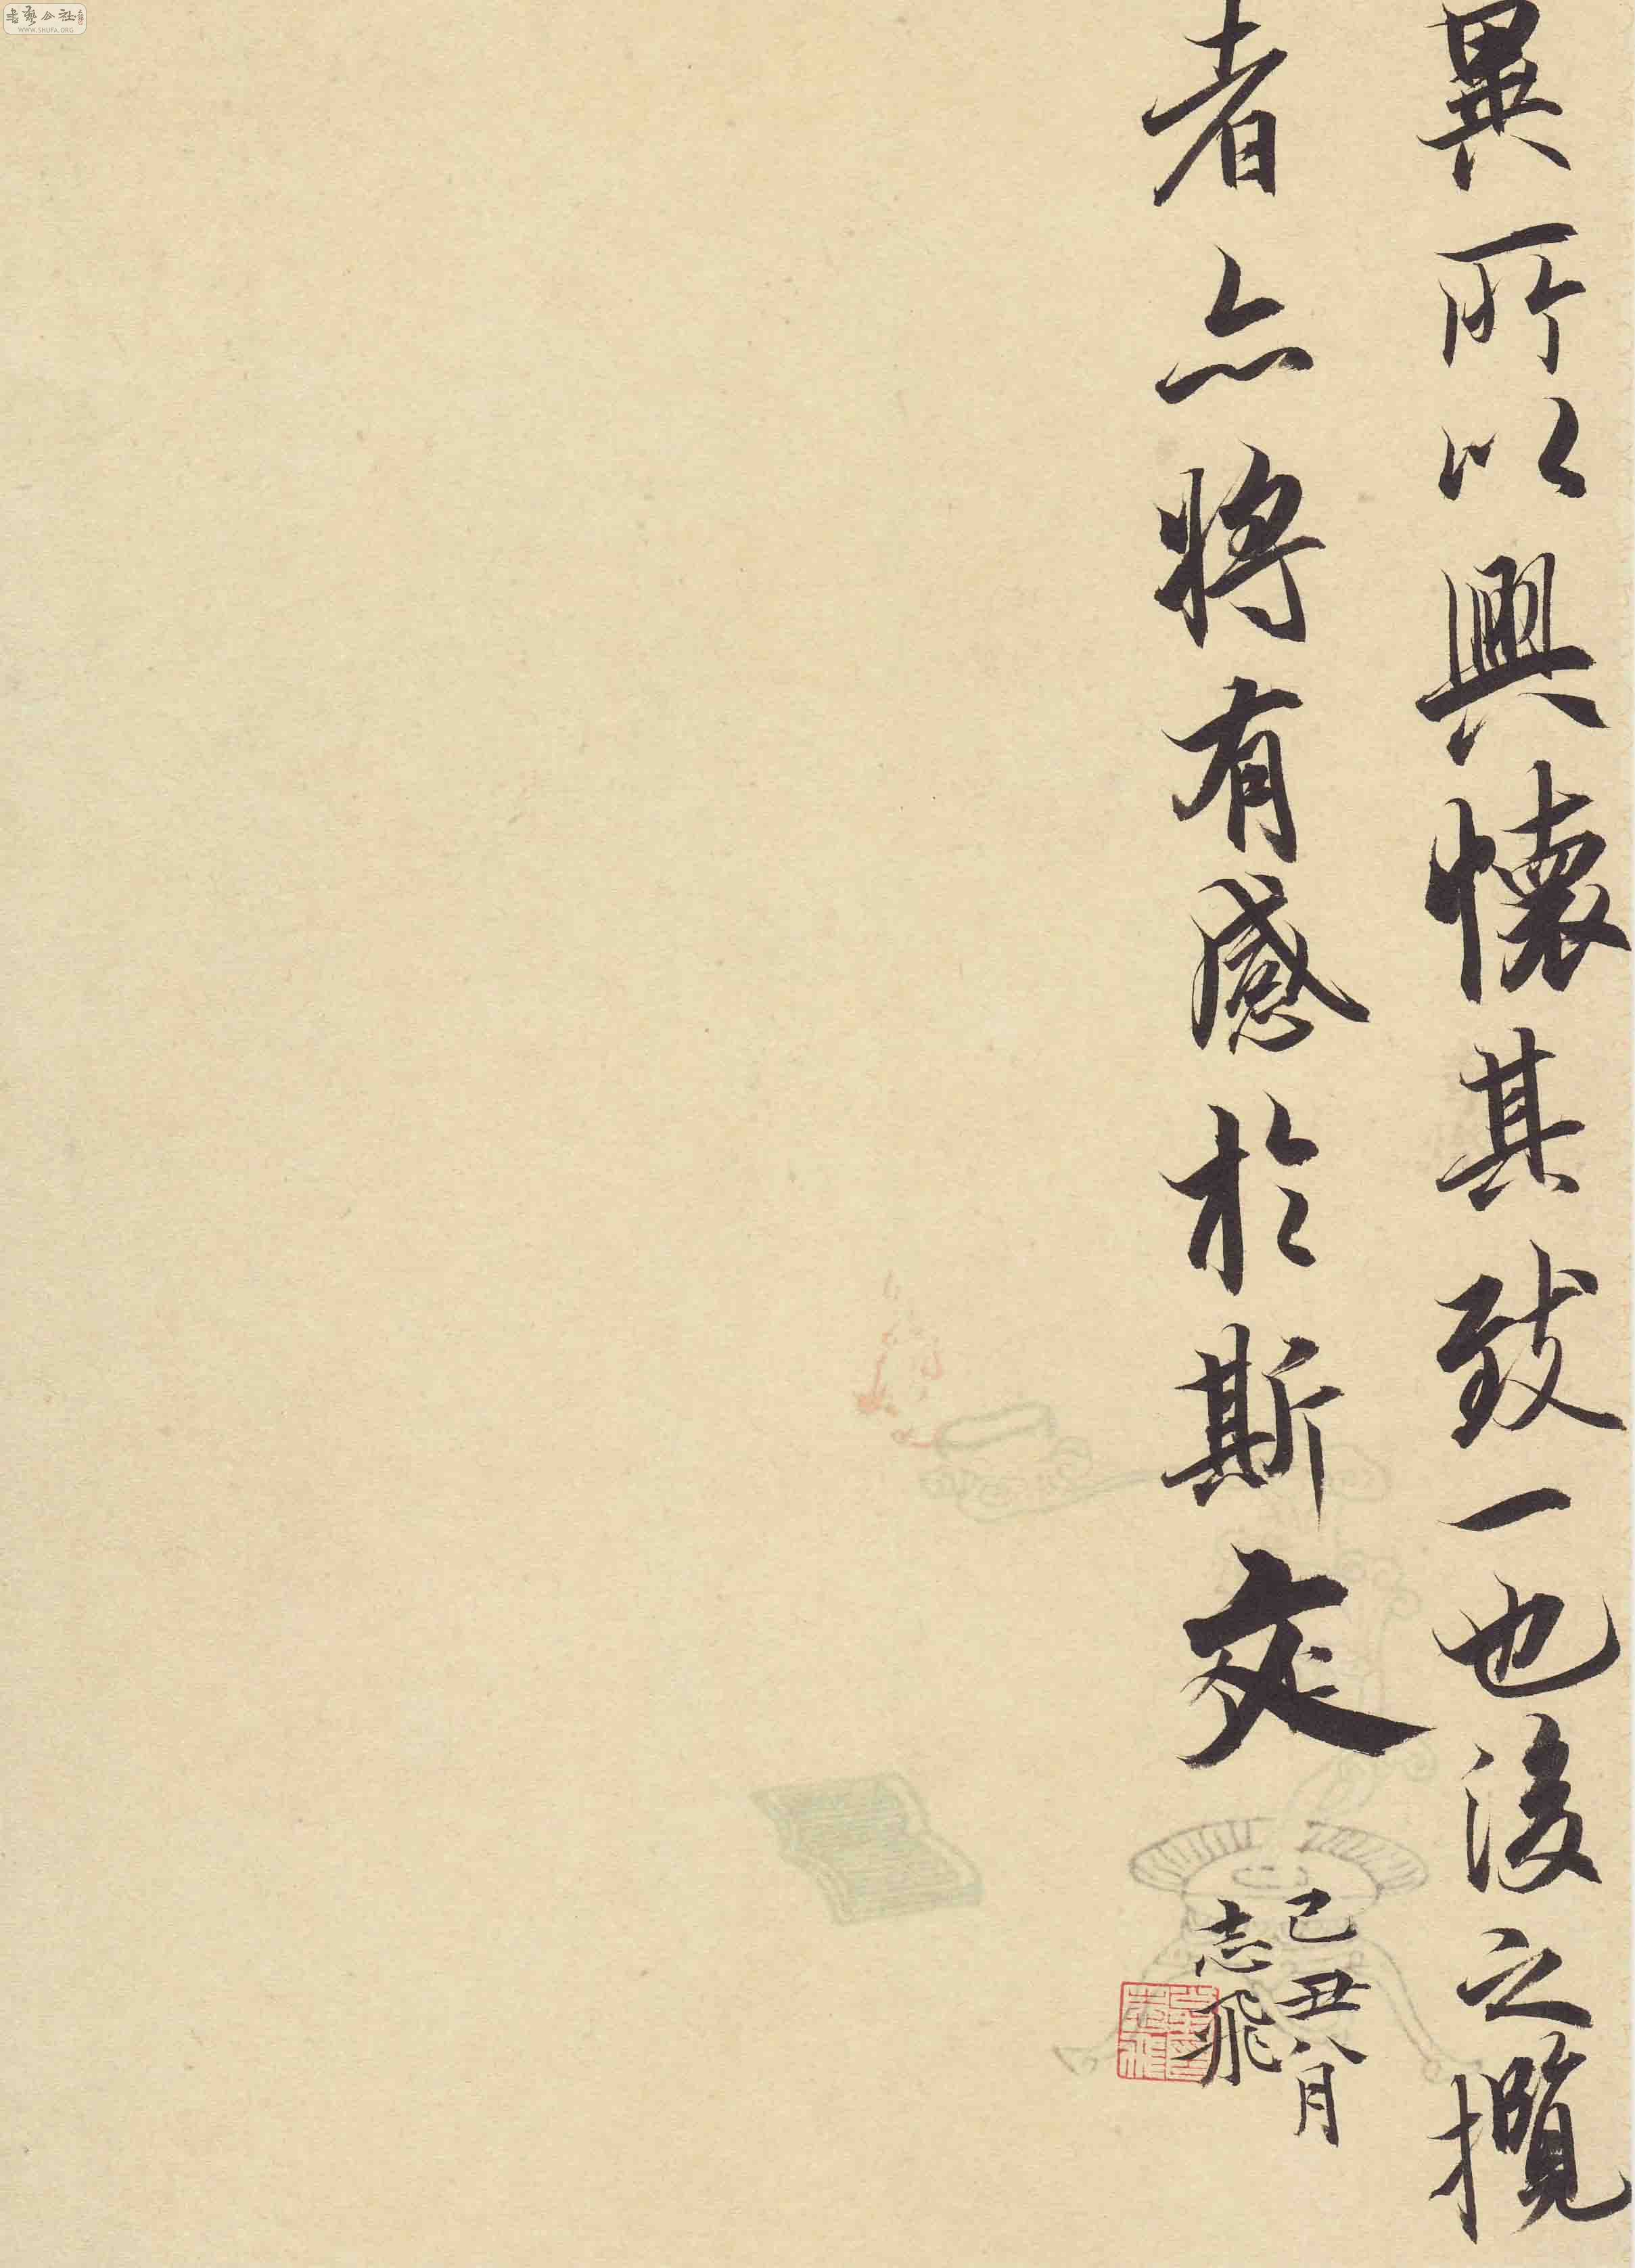 異所以興懷其致一也後之攬
者亦將有感於斯文
己丑八月
志飛
書藝公社
WWW.SHUFA.ORG